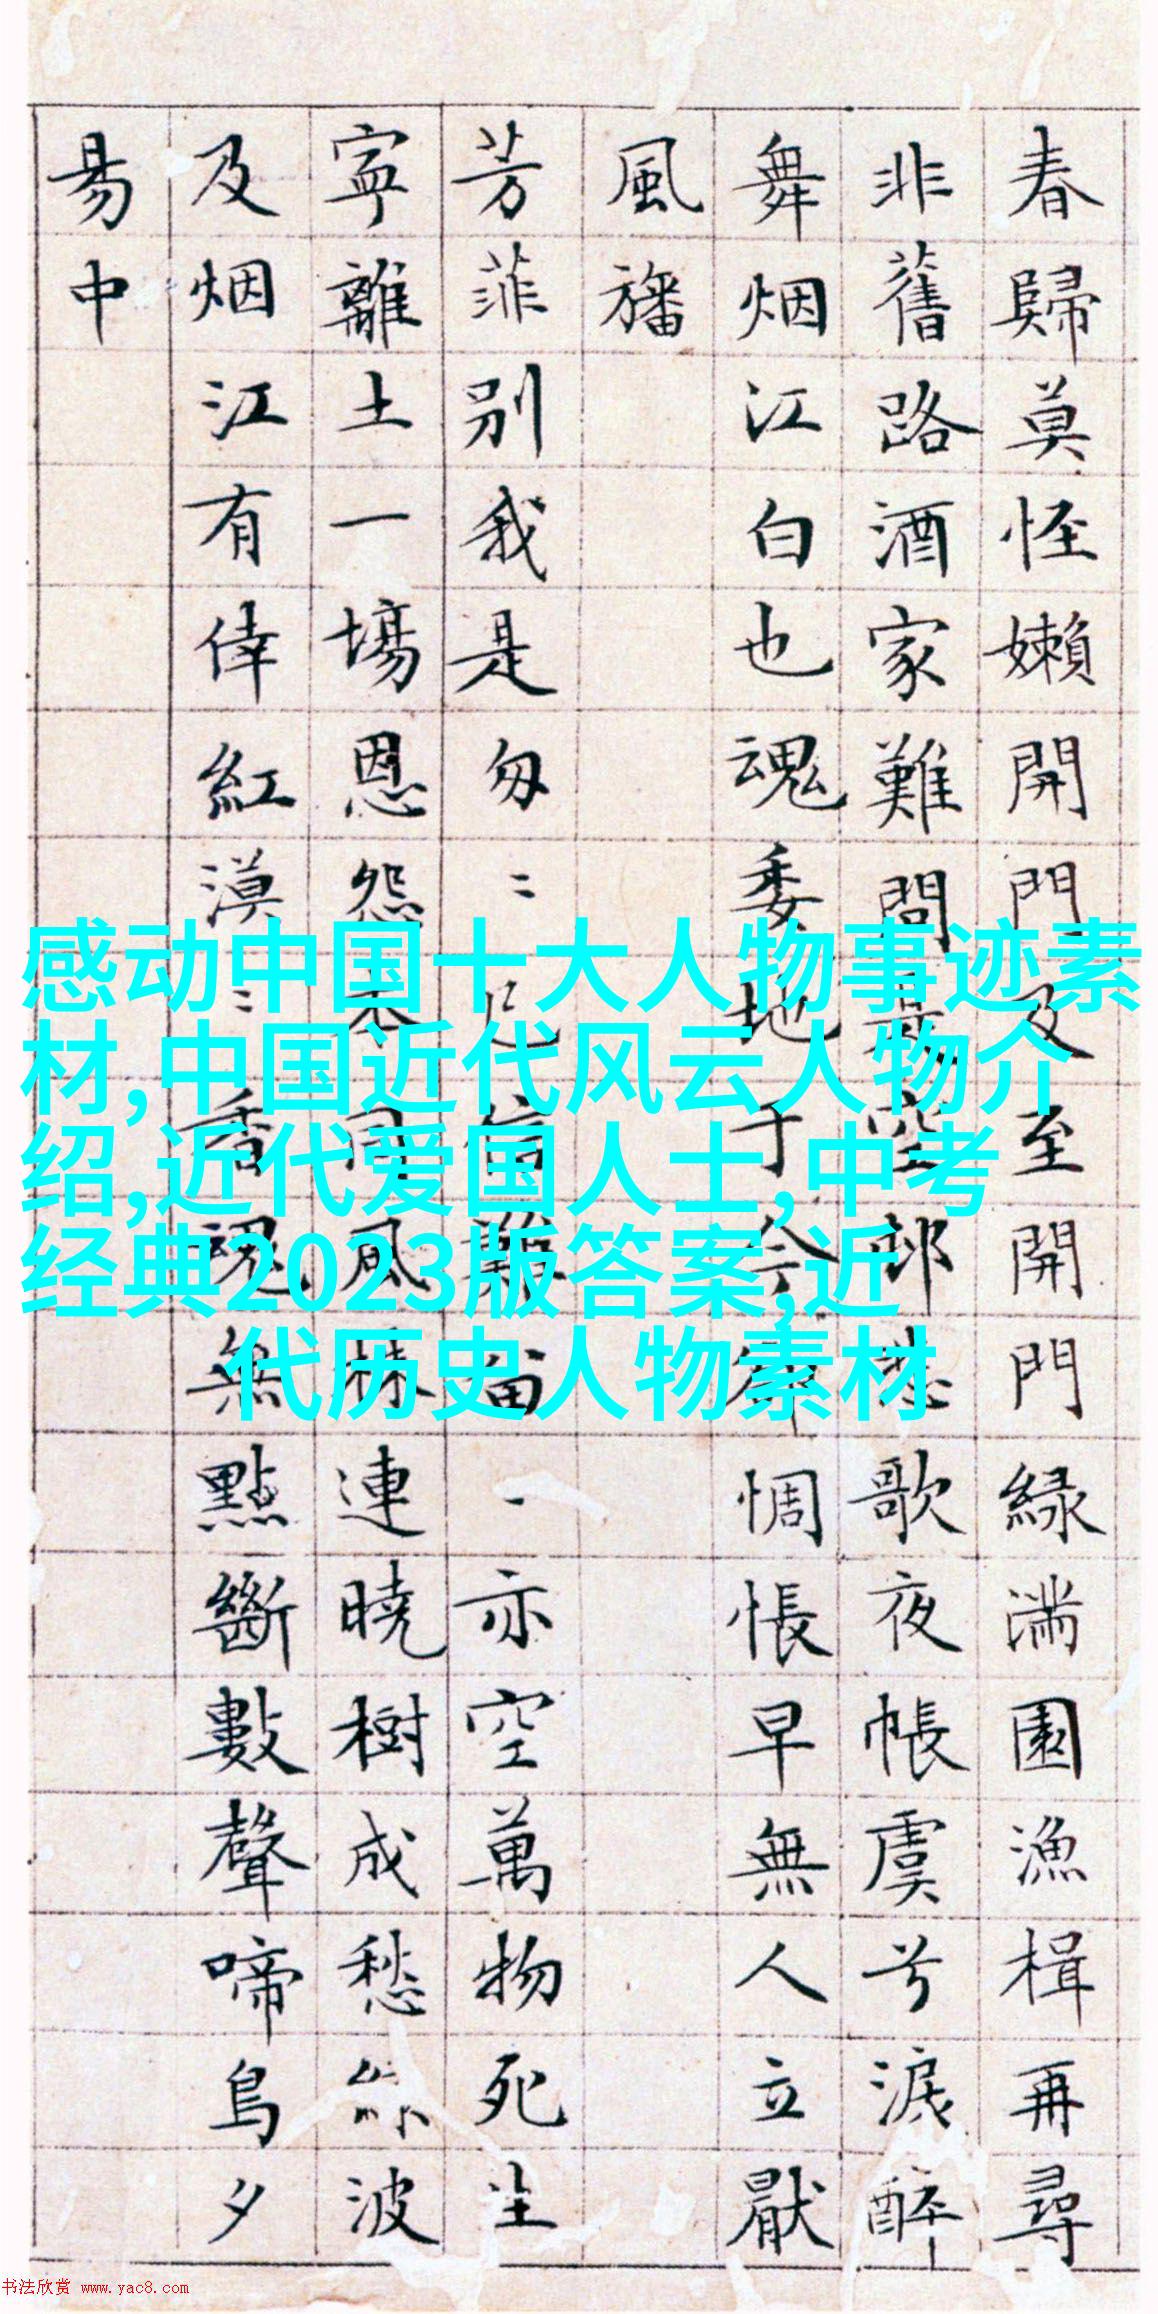 春歸莫怪嬾開門及至開門緑滿園漁楫再尋
非舊路酒家難問空邨悲歌夜帳虞兮淚醉
舞烟江白也魂委地于今卻惆悵早無人立厭
風旛
芳菲别我是匆〻已信難留一亦空萬物死生
寧離土一塲恩怨本同風株連曉樹成愁波
及烟江有倖紅漠〻香魂無點斷數聲啼鳥夕
昜中
感动中国十大人物事迹素
材,中国近代风云人物介
绍,近代爱国人士,中考
经典2023版答案,近
代历史人物素材
书法欣赏 www.yac8.com